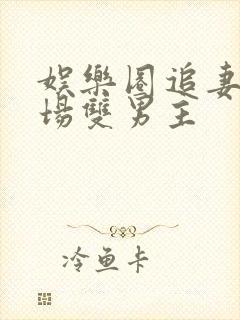 娛樂圈追妻
場雙男主
冷魚卡